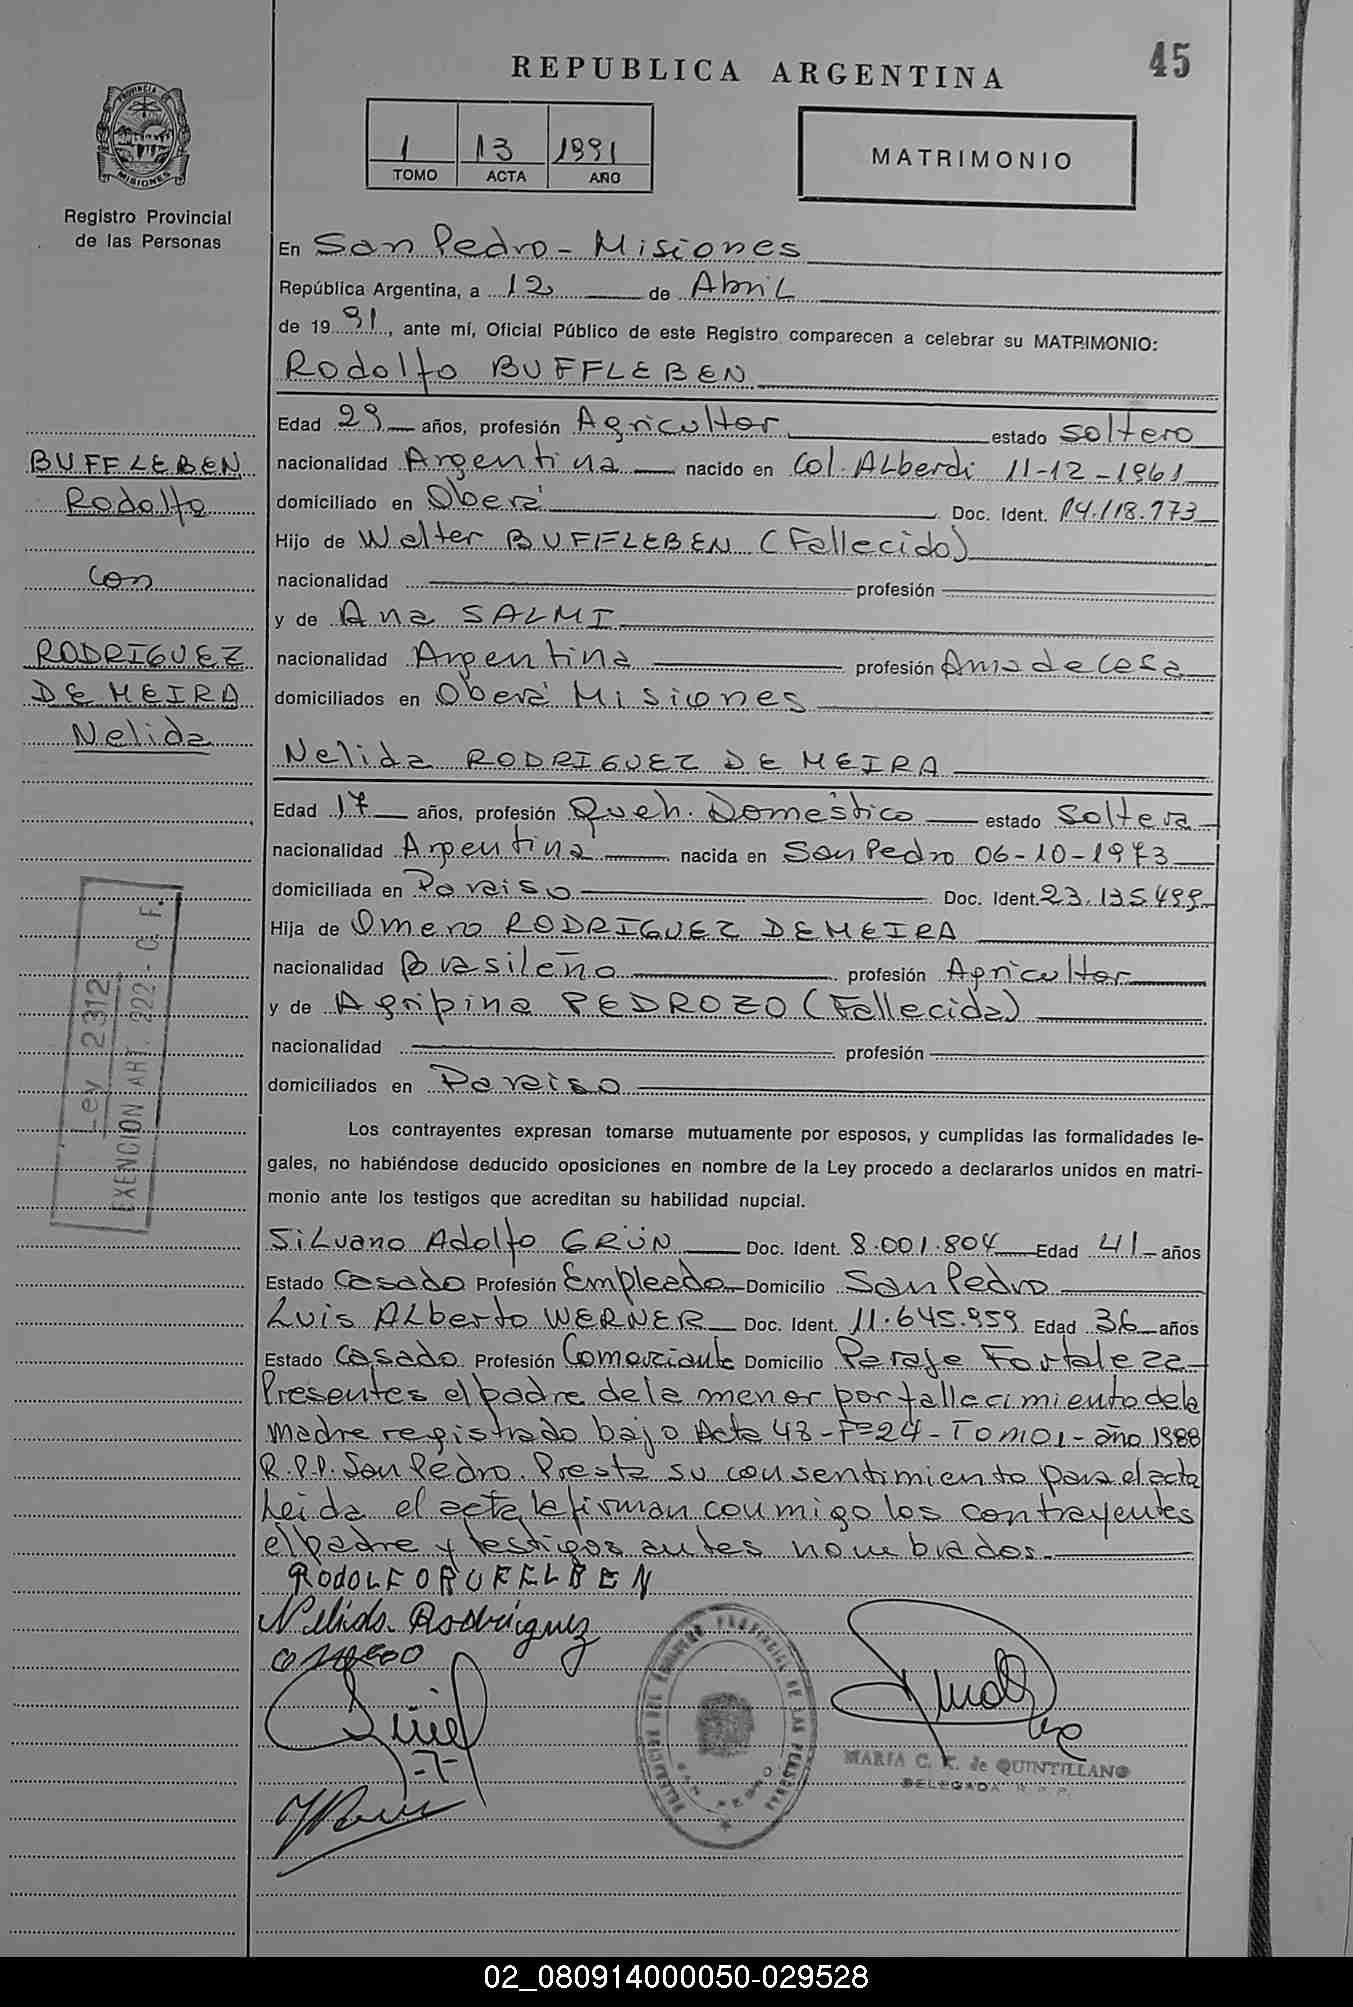 45
REPUBLICA ARGENTINA
PROVINCIA DE MISIONES
Registro Provincial
de las Personas
1 13 1991
TOMO ACTA AÑO
MATRIMONIO
En San Pedro - Misiones
República Argentina, a 12 de Abril
de 1991, ante mí, Oficial Público de este Registro comparecen a celebrar su MATRIMONIO:
Rodolfo BUFFLEBEN
Edad 29 años, profesión Agricultor estado soltero
nacionalidad Argentina nacido en Col. Alberdi 11-12-1961
domiciliado en Oberá Doc. Ident. 14.118.973
Hijo de Walter BUFFLEBEN (Fallecido)
nacionalidad profesión
y de Ana SALMI
nacionalidad Argentina profesión Ama de casa
domiciliados en Oberá Misiones
Nelida RODRIGUEZ DE MEIRA
Edad 17 años, profesión Queh. Doméstico estado Soltera
nacionalidad Argentina nacida en San Pedro 06-10-1973
domiciliada en Paraiso Doc. Ident. 23.135.499
Hija de Omero RODRIGUEZ DE MEIRA
nacionalidad Brasileño profesión Agricultor
y de Agripina PEDROZO (Fallecida)
nacionalidad profesión
domiciliados en Paraiso
Los contrayentes expresan tomarse mutuamente por esposos, y cumplidas las formalidades le-
gales, no habiéndose deducido oposiciones en nombre de la Ley procedo a declararlos unidos en matri-
monio ante los testigos que acreditan su habilidad nupcial.
Silvano Adolfo GRÜN Doc. Ident. 8.001.804 Edad 41 años
Estado Casado Profesión Empleado Domicilio San Pedro
Luis Alberto WERNER Doc. Ident. 11.645.959 Edad 36 años
Estado Casado Profesión Comerciante Domicilio Paraje Fortaleza
Presentes el padre de la menor por fallecimiento de la
madre registrado bajo Acta 43 - Fº 24 - Tomo 1 - año 1988
R.P.P. San Pedro. Presta su consentimiento para el acta
Leida el acta, la firman conmigo los contrayentes
el padre y testigos antes nombrados.
BUFFLEBEN
Rodolfo
con
RODRIGUEZ
DE MEIRA
Nelida
Ley 2312
EXENCION ART. 222 - C. F.
RODOLFO BUFFLBEN
Nelida Rodriguez
DELEGACION DEL REGISTRO PROVINCIAL DE LAS PERSONAS
SAN PEDRO
MARIA C. K. de QUINTILLANO
DELEGADA R. P. P.
02_080914000050-029528